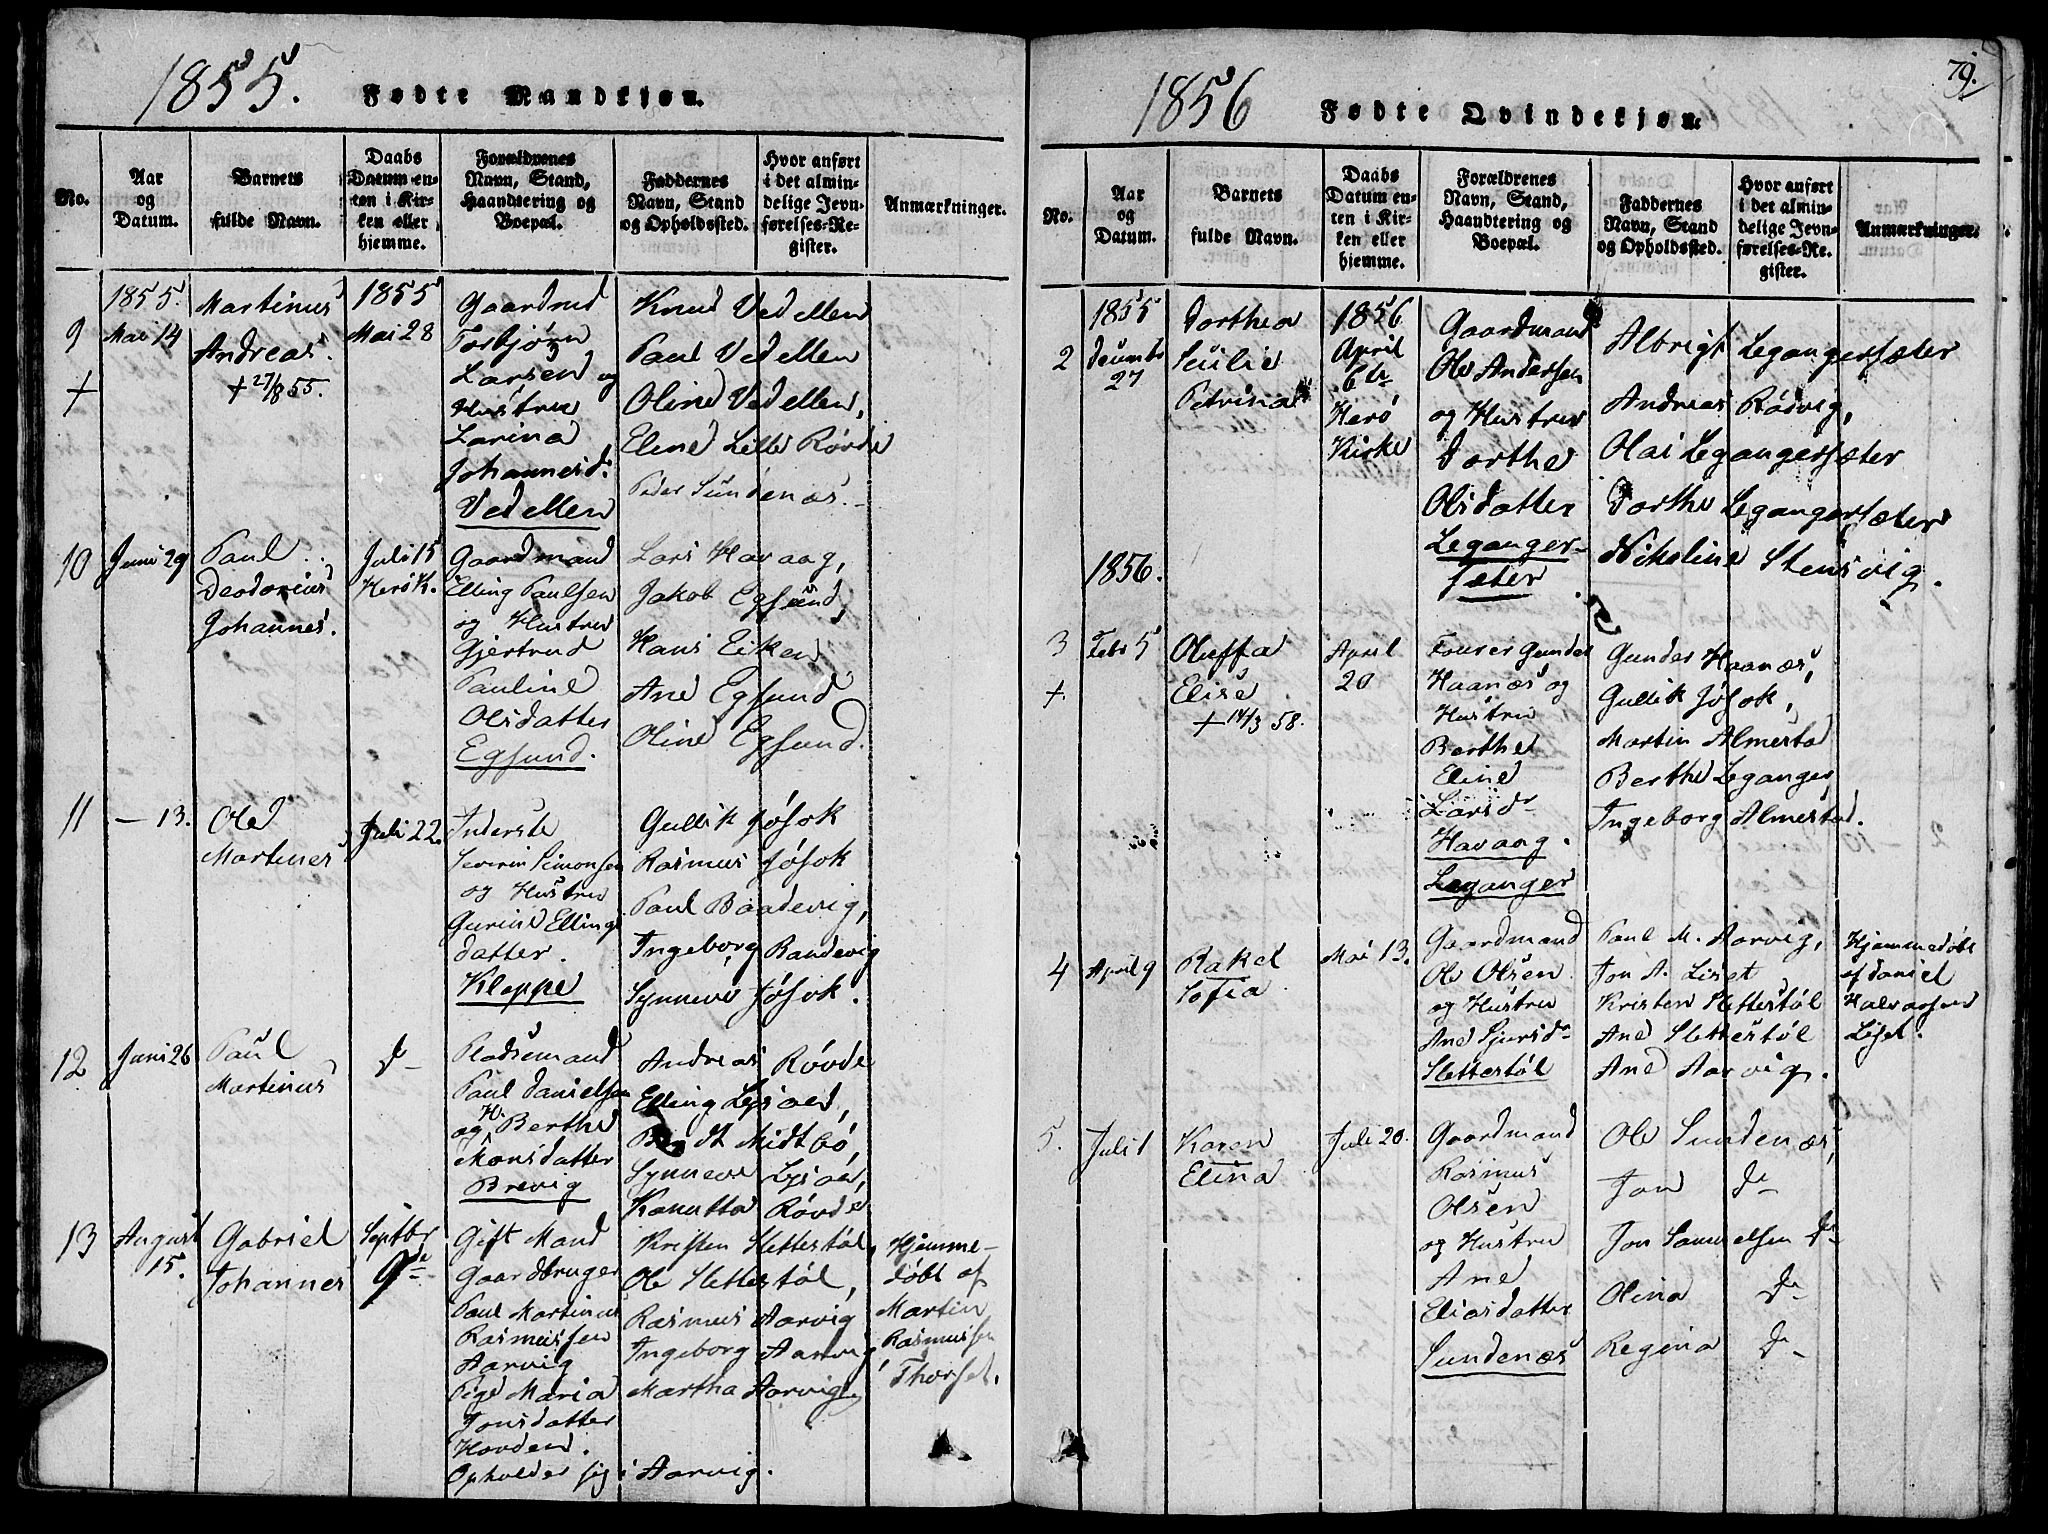 1855.
Fødte Mandkjøn.
No.
Aar
og
Datum.
Barnets
fulde Navn.
Daabs
Datum en-
ten i Kir-
ken eller
hjemme.
Forældrenes
Navn, Stand,
Haandtering og
Boepæl.
Faddernes
Navn, Stand
og Opholdssted.
Hvor anført
i det almin-
delige Jevn-
førelses-Re-
gister.
Anmærkninger.
9
+
1855.
Mai 14
Martinus
Andreas.
+ 27/8 55.
1855
Mai 28
Gaardmd
Torbjørn
Larsen og
Hustru
Larina
Johannesd.
Vedellen
Knud Vedellen
Paul Vedellen
Oline Vedellen,
Eline Lille Røvde
Peder Sundenæs.
10
Juni 29
Paul
Deodorius
Johannes.
Juli 15
Herö K.
Gaardmand
Elling Paulsen
og Hustru
Gjertrud
Pauline
Olsdatter
Egsund.
Lars Havaag,
Jakob Egsund,
Hans Eiken
Ane Egsund
Oline Egsund.
11
— 13.
Ole
Martines
Juli 22.
Inderste
Severin Simonsen
og Hustru
Gurine Ellings
datter.
Kleppe
Gullik Jøsok
Rasmus Jøsok
Paul Baadevig,
Ingeborg Bandevig
Synneve Jøsok.
12
Juni 26
Paul
Martinus
d-
Pladsemand
Paul Danielsen
og H. Berthe
Monsdatter
Brevig
Andreas Røvde
Elling Lejsoed,
Bendt Midtbö,
Synneve Lejsoed,
Kanutta Røvde
13
August
15.
Gabriel
Johannes
Septbr
9de
Gift Mand
Gaardbruger
Paul Martinus
Rasmussen
Aarvig
Pige Maria
Jonsdatter
Hovden.
Opholder sig i Aarvig.
Kristen Slettestøl,
Ole Slettestøl,
Rasmus Aarvig
Ingeborg Aarvig
Martha Aarvig
Hjemme-
døbt af
Martin
Rasmussen
Thorset.
79.
1856
Fødte Qvindekjøn.
No.
Aar
og
Datum.
Barnets
fulde Navn.
Daabs
Datum en-
ten i Kir-
ken eller
hjemme.
Forældrenes
Navn, Stand,
Haandtering og
Boepæl.
Faddernes
Navn, Stand
og Opholdssted.
Hvor anført
i det almin-
delige Jevn-
førelses-Re-
gister.
Anmærkninger.
2
1855
Decembr
27
Dorthea
Seselie
Petrina
1856
April
6te
Herö
Kirke
Gaardmand
Ole Andersen
og Hustru
Dorthe
Olsdatter
Leganger-
sæter
Albrigt Legangersæter
Andreas Rødvig,
Olai Legangersæter
Dorthe Legangersæter
Nikoline Stensvig.
1856.
3
+
Febr 5
Oluffa
Elise
+ 14/3 58.
April
20
Fourer Gunder
Haanæs og
Hustru
Berthe
Eline
Larsdr
Havaag.
Leganger
Gunder Haanæs,
Gullik Jøsok,
Martin Almestad
Berthe Leganger,
Ingeborg Almestad.
4
April 9
Rakel
Sofia
Mai 13.
Gaardmand
Ole Olsen
og Hustru
Ane Sjursdr
Slettestøl
Paul M. Aarvig,
Jon A. Liset
Kristen Slettestøl
Ane Slettestøl
Ane Aarvig.
Hjemmedøbt
af Daniel
Halvorsen
Liset.
5.
Juli 1
Karen
Elina
Juli 20.
Gaardmand
Rasmus
Olsen
og Hustru
Ane
Eliasdatter
Sundenæs
Ole Sundenæs,
Jon d-
Jon Samuelsen d-
Olina d-
Regina d-